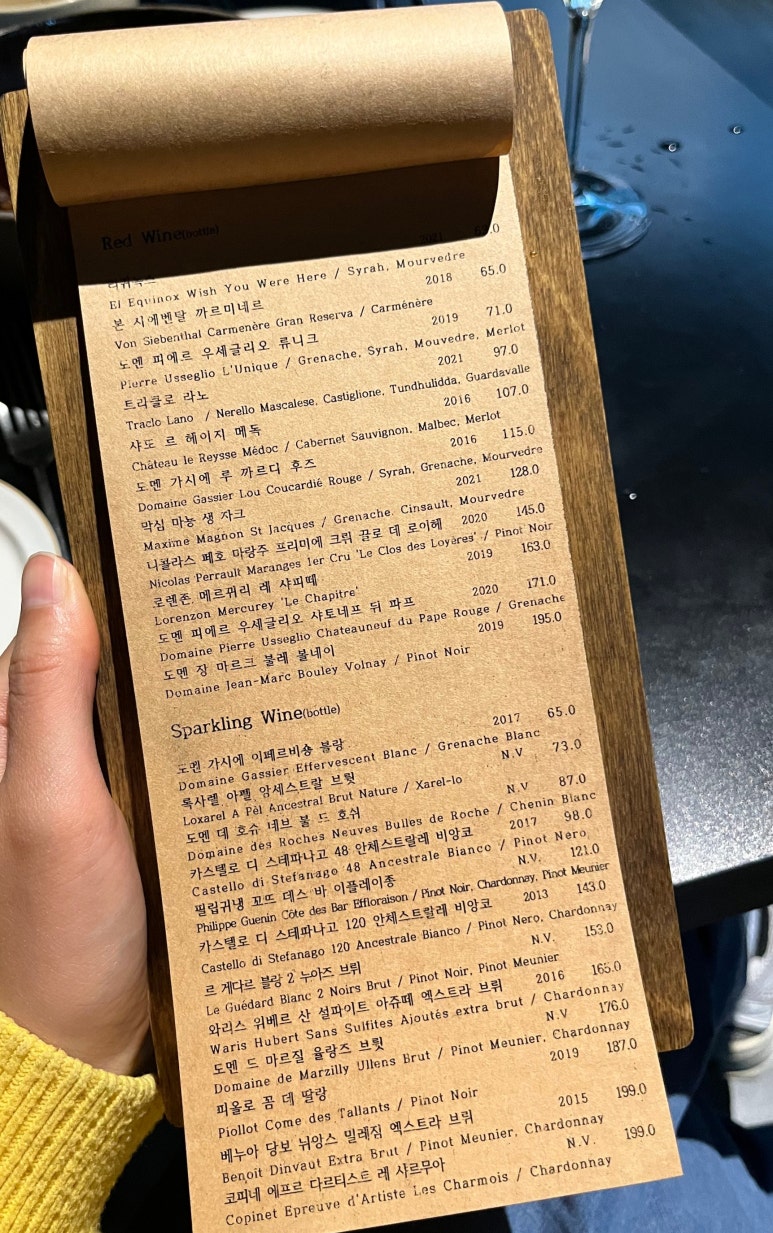 Red Wine(bottle)
2021
El Equinox Wish You Were Here / Syrah, Mourvedre
본 시에벤탈 까르미네르 2018 65.0
Von Siebenthal Carmenère Gran Reserva / Carménère
도멘 피에르 우세글리오 류니크 2019 71.0
Pierre Usseglio L'Unique / Grenache, Syrah, Mouvedre, Merlot
트라클로 라노 2021 97.0
Traclo Lano / Nerello Mascalese, Castiglione, Tundhulidda, Guardavalle
샤또 르 헤이지 메독 2016 107.0
Château le Reysse Médoc / Cabernet Sauvignon, Malbec, Merlot
도멘 가시에 루 까르디 후즈 2016 115.0
Domaine Gassier Lou Coucardié Rouge / Syrah, Grenache, Mourvedre
막심 마뇽 생 자크 2021 128.0
Maxime Magnon St Jacques / Grenache, Cinsault, Mourvedre
니콜라스 페호 마랑주 프리미에 크뤼 끌로 데 로이헤 2020 145.0
Nicolas Perrault Maranges 1er Cru 'Le Clos des Loyères' / Pinot Noir
로렌존, 메르퀴리 레 샤피떼 2019 163.0
Lorenzon Mercurey 'Le Chapitre'
도멘 피에르 우세글리오 샤토네프 뒤 파프 2020 171.0
Domaine Pierre Usseglio Chateauneuf du Pape Rouge / Grenache
도멘 장 마르크 불레 볼네이 2019 195.0
Domaine Jean-Marc Bouley Volnay / Pinot Noir
Sparkling Wine(bottle)
도멘 가시에 이페르비숑 블랑 2017 65.0
Domaine Gassier Effervescent Blanc / Grenache Blanc
록사렐 아펠 앙세스트랄 브륏 N.V 73.0
Loxarel A Pèl Ancestral Brut Nature / Xarel-lo
도멘 데 호슈 네브 불 드 호쉬 N.V 87.0
Domaine des Roches Neuves Bulles de Roche / Chenin Blanc
카스텔로 디 스테파나고 48 안체스트랄레 비앙코 2017 98.0
Castello di Stefanago 48 Ancestrale Bianco / Pinot Nero
필립귀냉 꼬뜨 데스 바 이플레이종 N.V. 121.0
Philippe Guenin Côte des Bar Effloraison / Pinot Noir, Chardonnay, Pinot Meunier
카스텔로 디 스테파나고 120 안체스트랄레 비앙코 2013 143.0
Castello di Stefanago 120 Ancestrale Bianco / Pinot Nero, Chardonnay
르 게다르 블랑 2 누아즈 브뤼 N.V. 153.0
Le Guédard Blanc 2 Noirs Brut / Pinot Noir, Pinot Meunier
와리스 위베르 산 설파이트 아쥬떼 엑스트라 브뤼 2016 165.0
Waris Hubert Sans Sulfites Ajoutés extra brut / Chardonnay
도멘 드 마르질 율랑즈 브륏 N.V 176.0
Domaine de Marzilly Ullens Brut / Pinot Meunier, Chardonnay
피올로 꼼 데 딸랑 2019 187.0
Piollot Come des Tallants / Pinot Noir
베누아 당보 뉘앙스 밀레짐 엑스트라 브뤼 2015 199.0
Benoit Dinvaut Extra Brut / Pinot Meunier, Chardonnay
코피네 에프르 다르티스트 레 샤르무아 N.V. 199.0
Copinet Epreuve d'Artiste Les Charmois / Chardonnay